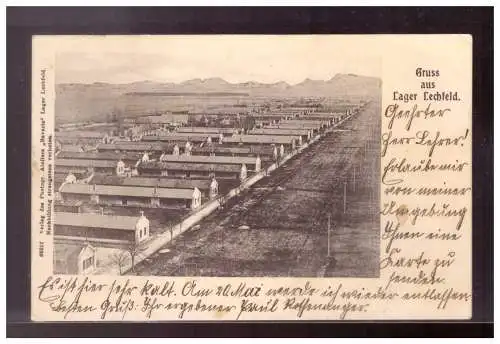 Gruss
aus
Lager Lechfeld.
Geehrter
Herr
Lehrer!
Erlaube mir
von meiner
Umgebung
Ihnen eine
Karte zu
senden.
Es ist hier sehr kalt. Am 20. Mai werde ich wieder entlassen
besten Gruß: Ihr ergebener Paul
Verlag des Photogr. Ateliers „Bavaria" Lager Lechfeld.
Nachbildung strengstens verboten.